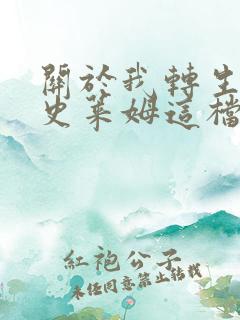 關於我轉生
史萊姆這檔
紅袍公子
未經同意禁止轉載